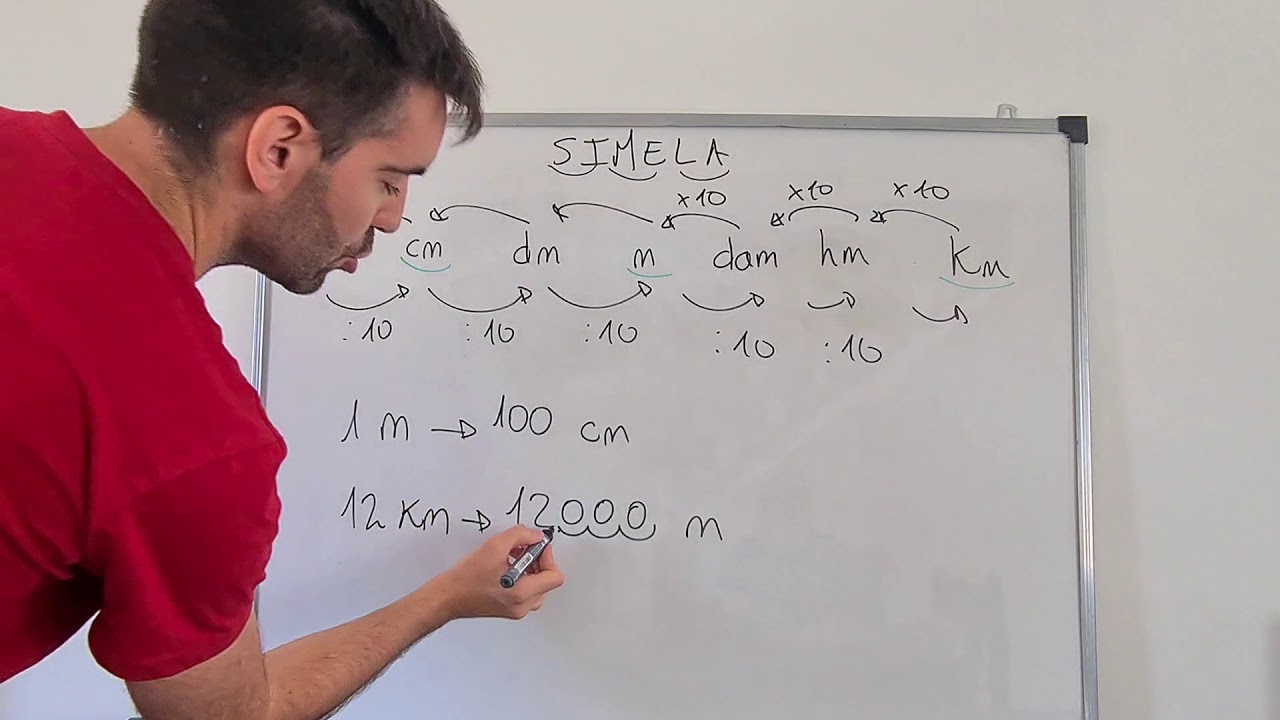 SIMELA
x10 x10 x10
cm dm m dam hm Km
:10 :10 :10 :10 :10
1 m → 100 cm
12 Km → 12000 m